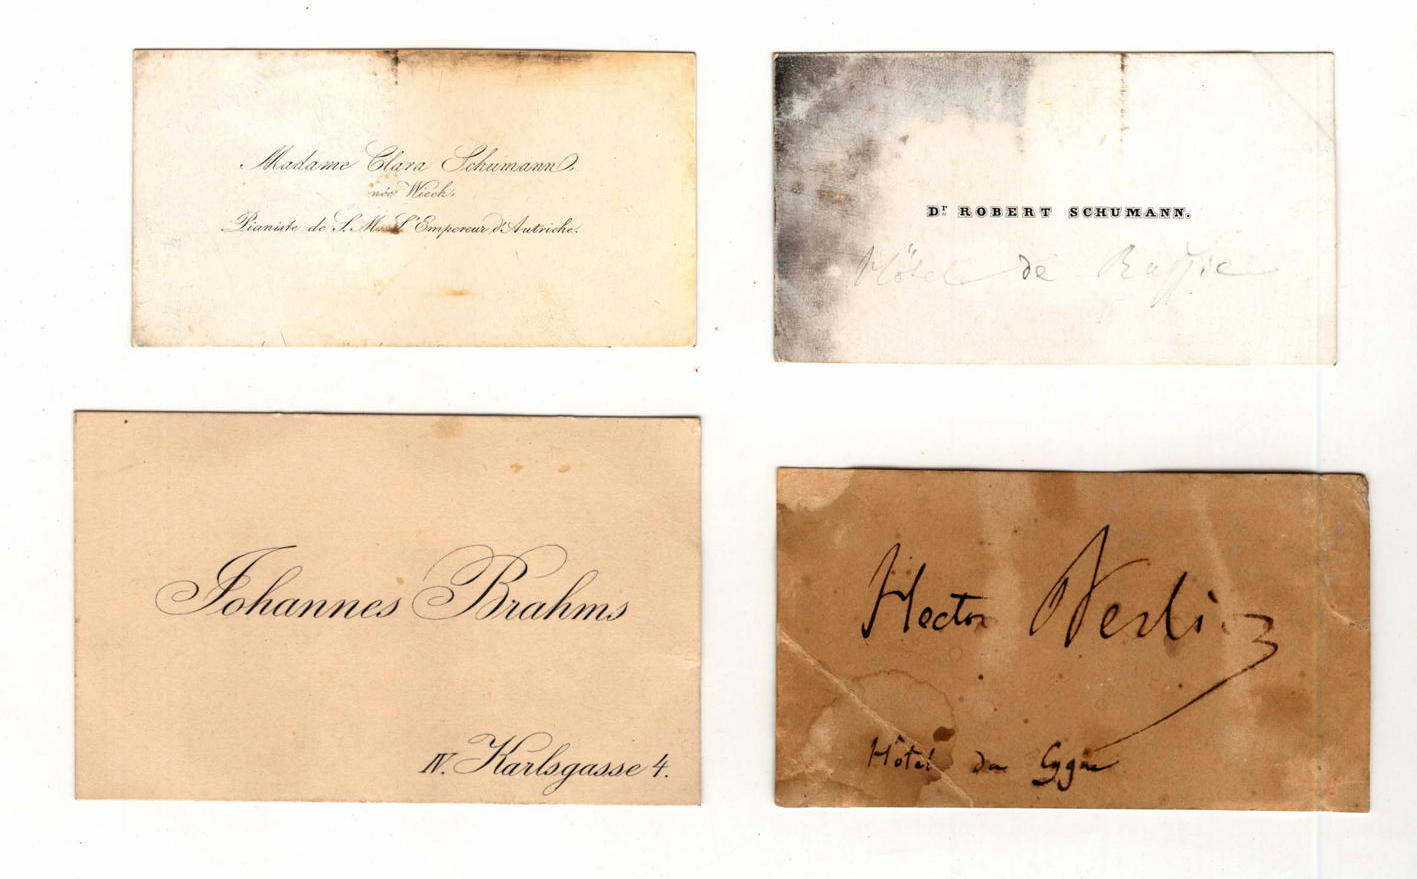 Madame Clara Schumann,
née Wieck,
Pianiste de S. M. L'Empereur d'Autriche.
Dr ROBERT SCHUMANN.
Hôtel de Russie
Johannes Brahms
IV. Karlsgasse 4.
Hector Berlioz
Hôtel du Cygne